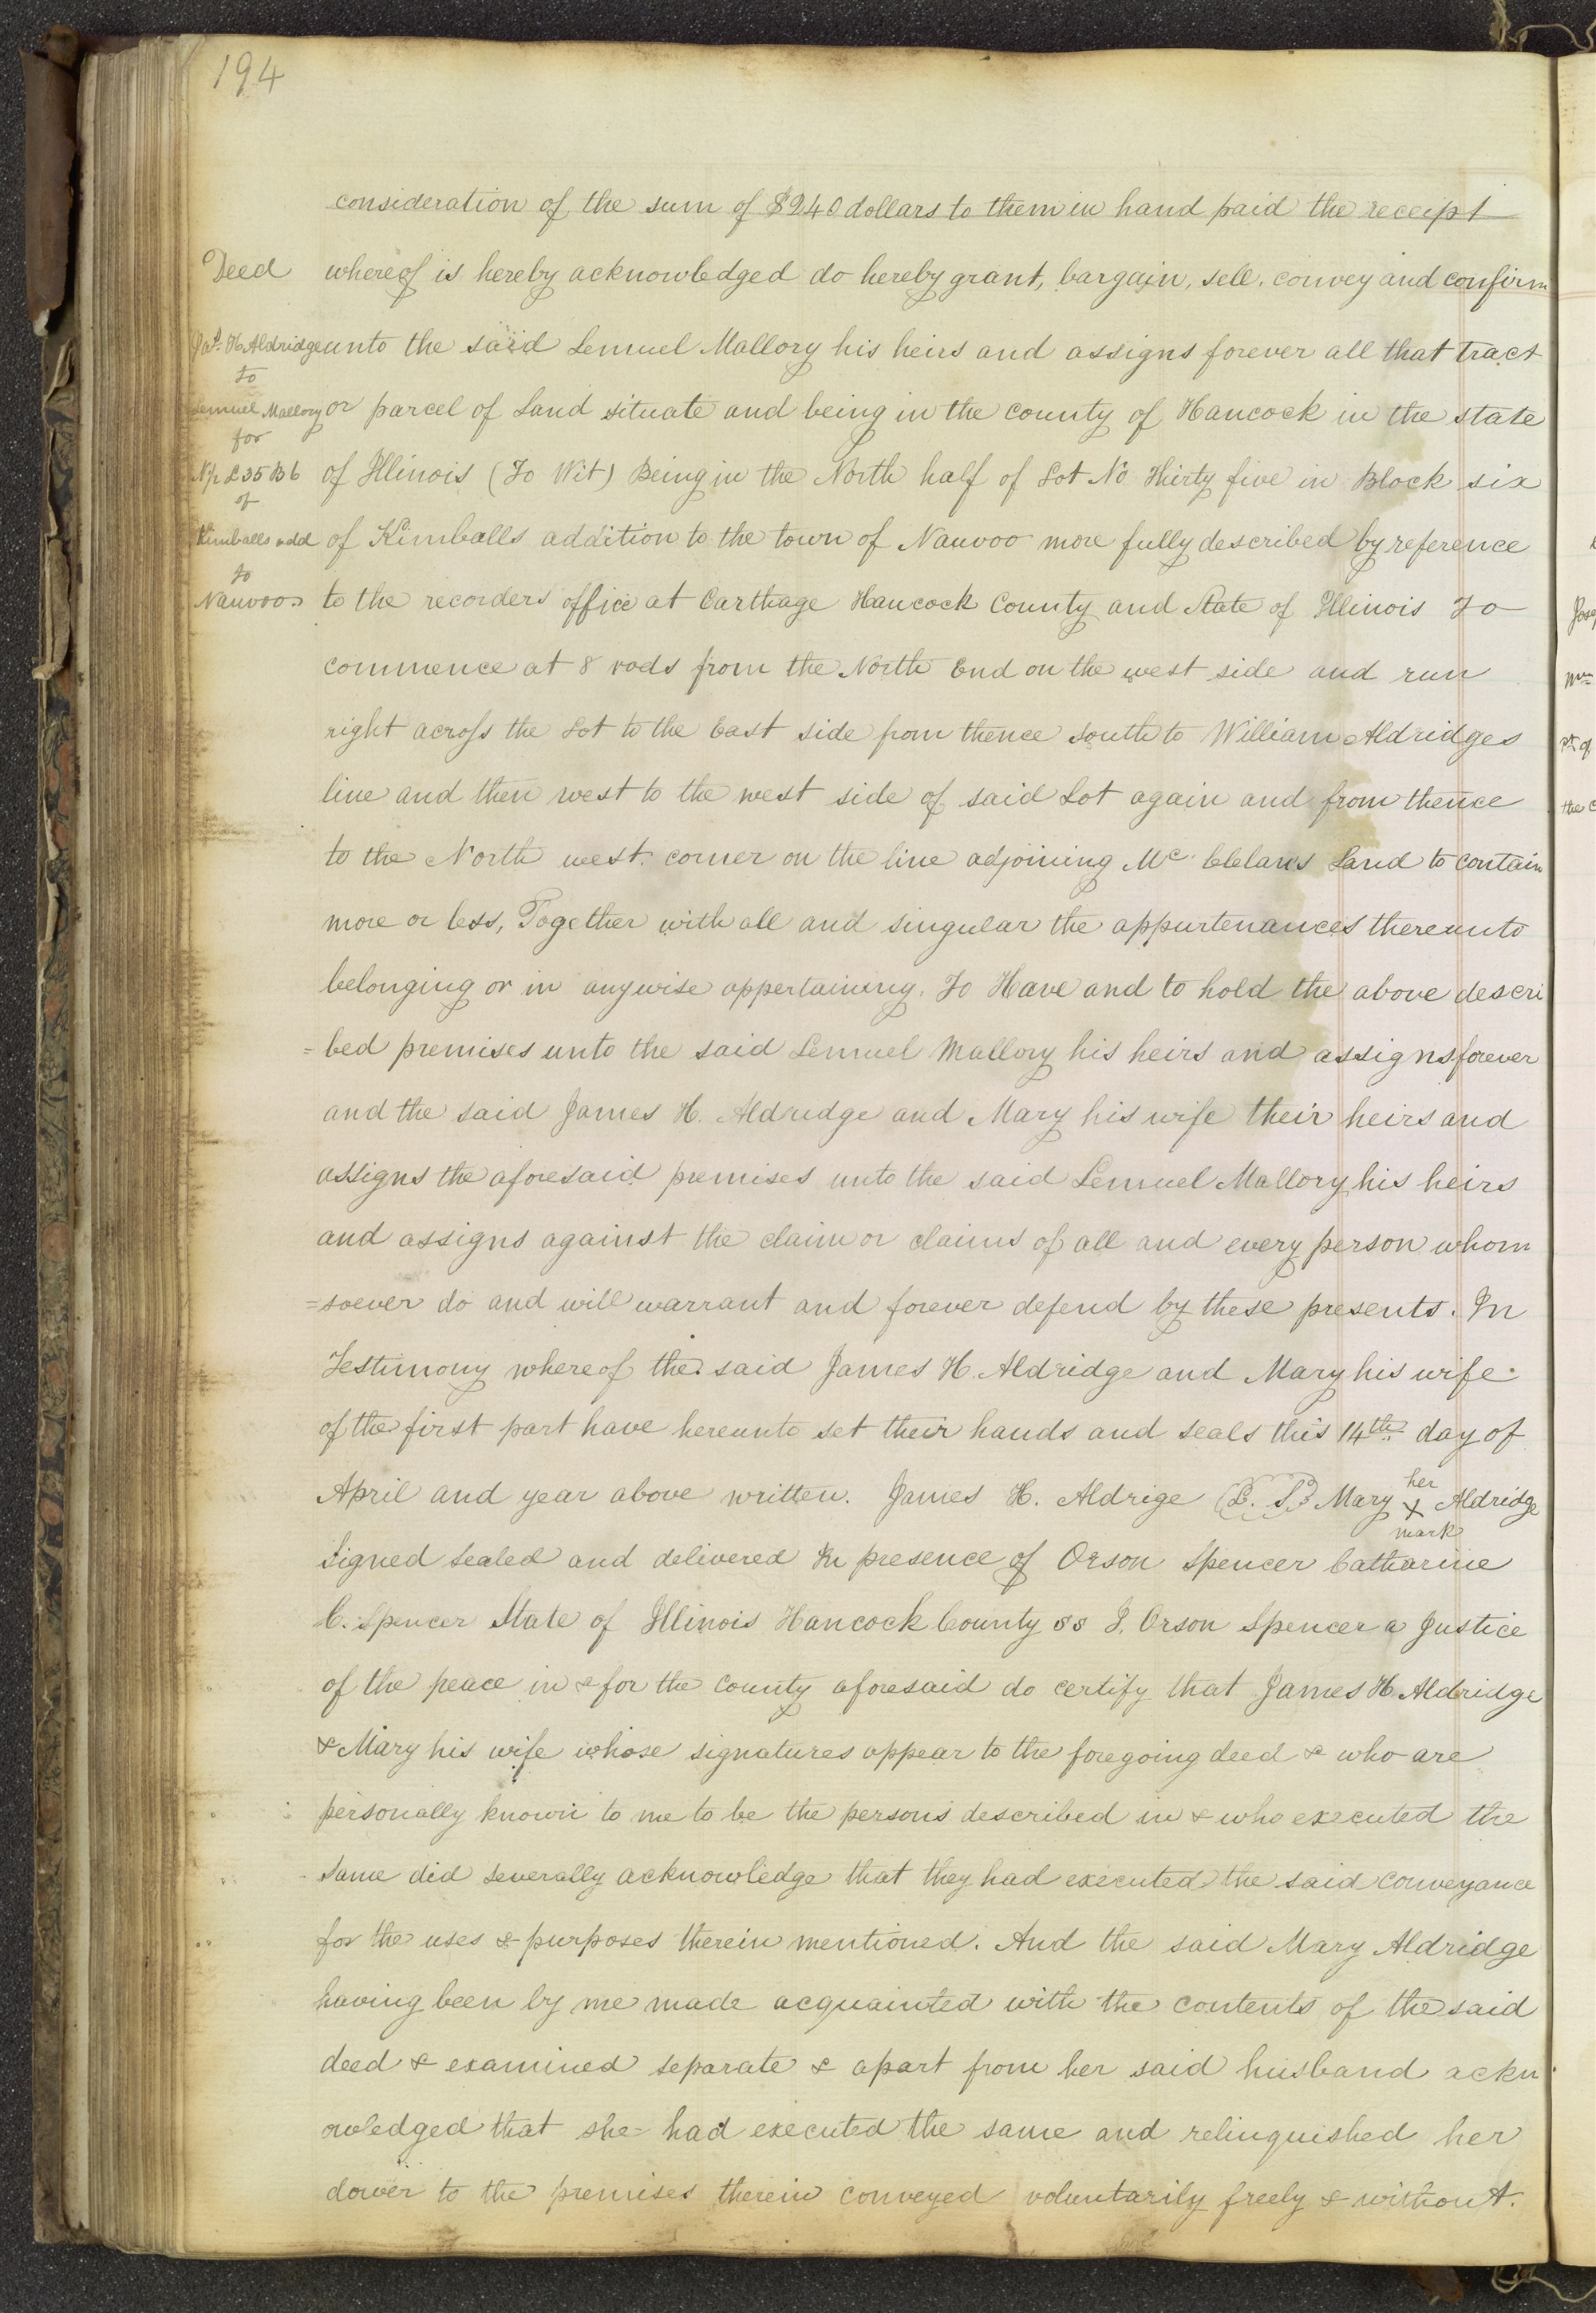 194
consideration of the sum of $240 dollars to them in hand paid the receipt
Deed
whereof is hereby acknowledged do hereby grant, bargain, sell, convey and confirm
Jas. H Aldridge
to
Lemuel Mallory
for
N½ L 35 B 6
of
Kimballs add
to
Nauvoo
unto the said Lemuel Mallory his heirs and assigns forever all that tract
or parcel of Land situate and being in the county of Hancock in the state
of Illinois (To Wit) Being in the North half of Lot No Thirty five in Block six
of Kimballs addition to the town of Nauvoo more fully described by reference
to the recorders office at Carthage Hancock County and State of Illinois To
commence at 8 rods from the North End on the west side and run
right across the Lot to the East side from thence south to William Aldridges
line and then west to the west side of said Lot again and from thence
to the North west corner on the line adjoining Mc Clelans Land to contain
more or less, Together with all and singular the appurtenances thereunto
belonging or in anywise appertaining. To Have and to hold the above descri
=bed premises unto the said Lemuel Mallory his heirs and assigns forever
and the said James H. Aldridge and Mary his wife their heirs and
assigns the aforesaid premises unto the said Lemuel Mallory his heirs
and assigns against the claim or claims of all and every person whom
=soever do and will warrant and forever defend by these presents. In
Testimony whereof the said James H. Aldridge and Mary his wife
of the first part have hereunto set their hands and seals this 14th day of
April and year above written. James H. Aldrige (L. S.) Mary her X mark Aldridge
Signed Sealed and delivered In presence of Orson Spencer Catharine
C. Spencer State of Illinois Hancock County ss I, Orson Spencer a Justice
of the peace in & for the County aforesaid do certify that James H. Aldridge
& Mary his wife whose signatures appear to the foregoing deed & who are
personally known to me to be the persons described in & who executed the
same did severally acknowledge that they had executed the said conveyance
for the uses & purposes therein mentioned. And the said Mary Aldridge
having been by me made acquainted with the contents of the said
deed & examined separate & apart from her said husband ackn
owledged that she had executed the same and relinquished her
dower to the premises therein conveyed voluntarily freely & without.